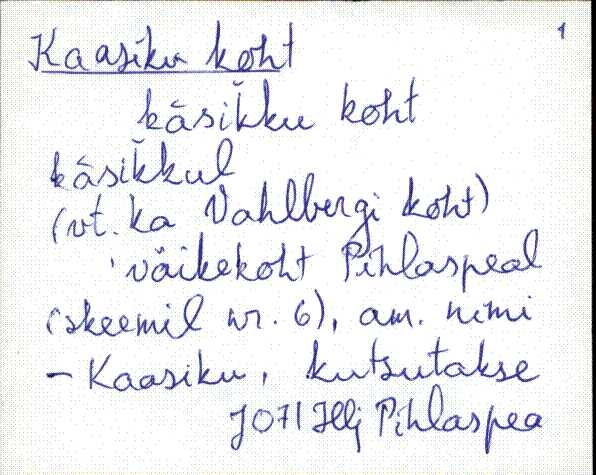 1
Kaasiku koht
kāsik̆ku koht
kāsik̆kul
(vt. ka Vahlbergi koht)
väikekoht Pihlaspeal
(skeemil nr. 6), am. nimi
– Kaasiku, kutsutakse
JÕ71 Hlj Pihlaspea